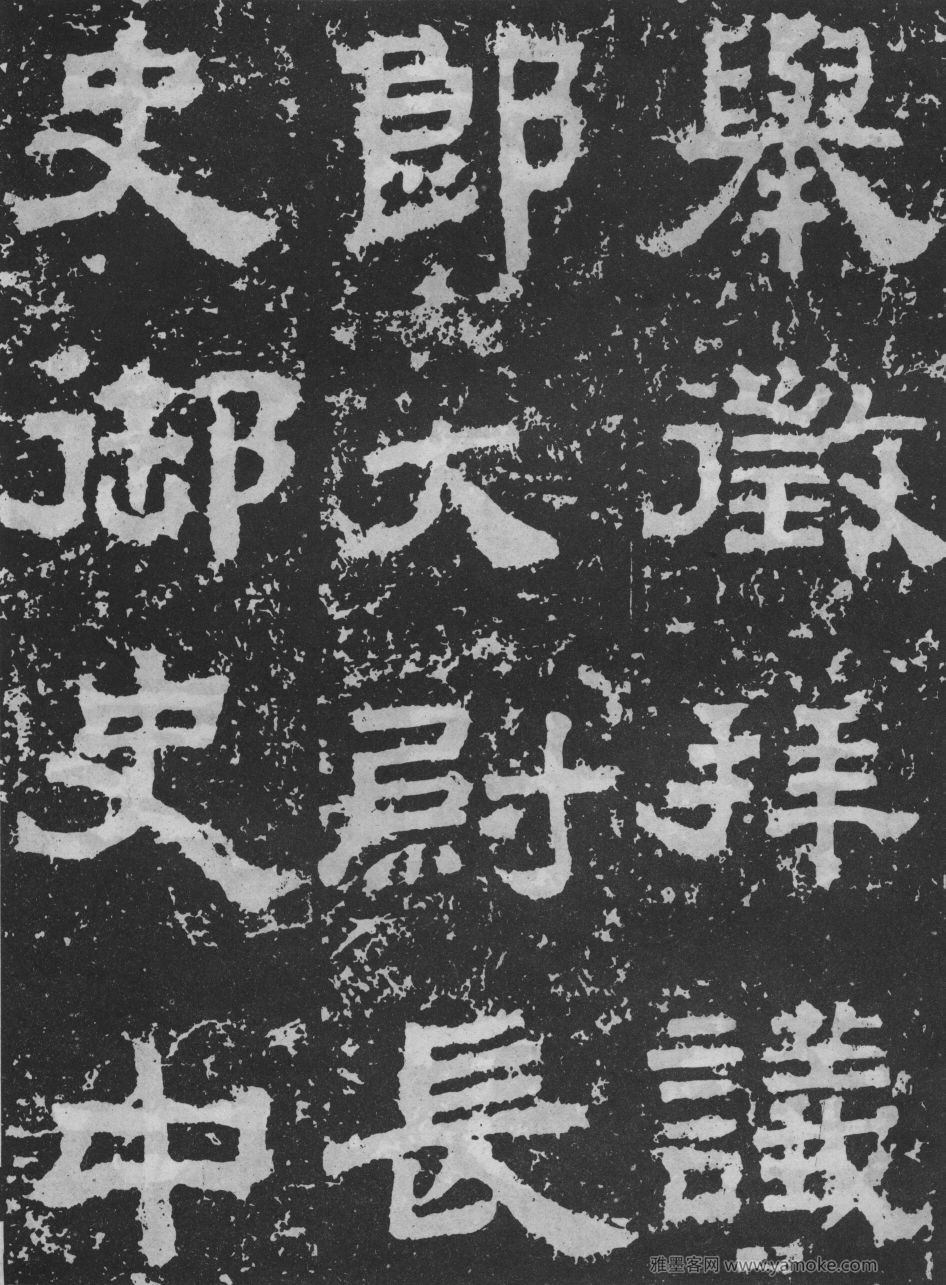 舉徵拜議
郎大尉長
史御史中
雅墨客网 www.yamoke.com